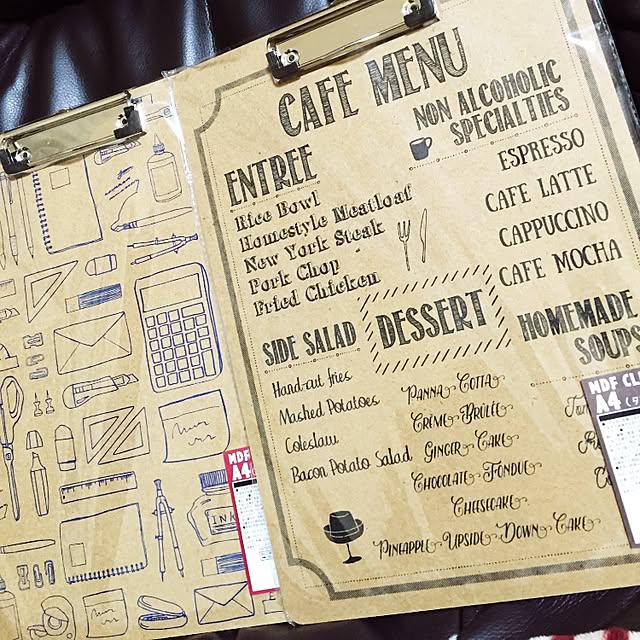 CAFE MENU
NON ALCOHOLIC
SPECIALTIES
ESPRESSO
CAFE LATTE
CAPPUCCINO
CAFE MOCHA
ENTREE
Rice Bowl
Homestyle Meatloaf
New York Steak
Pork Chop
Fried Chicken
SIDE SALAD
Hand-cut fries
Mashed Potatoes
Coleslaw
Bacon Potato Salad
DESSERT
Panna Cotta
Crème Brûlée
Ginger Cake
Chocolate Fondue
Cheesecake
Pineapple Upside Down Cake
HOMEMADE
SOUPS
MDF CLI
A4
MDF
A4
INK